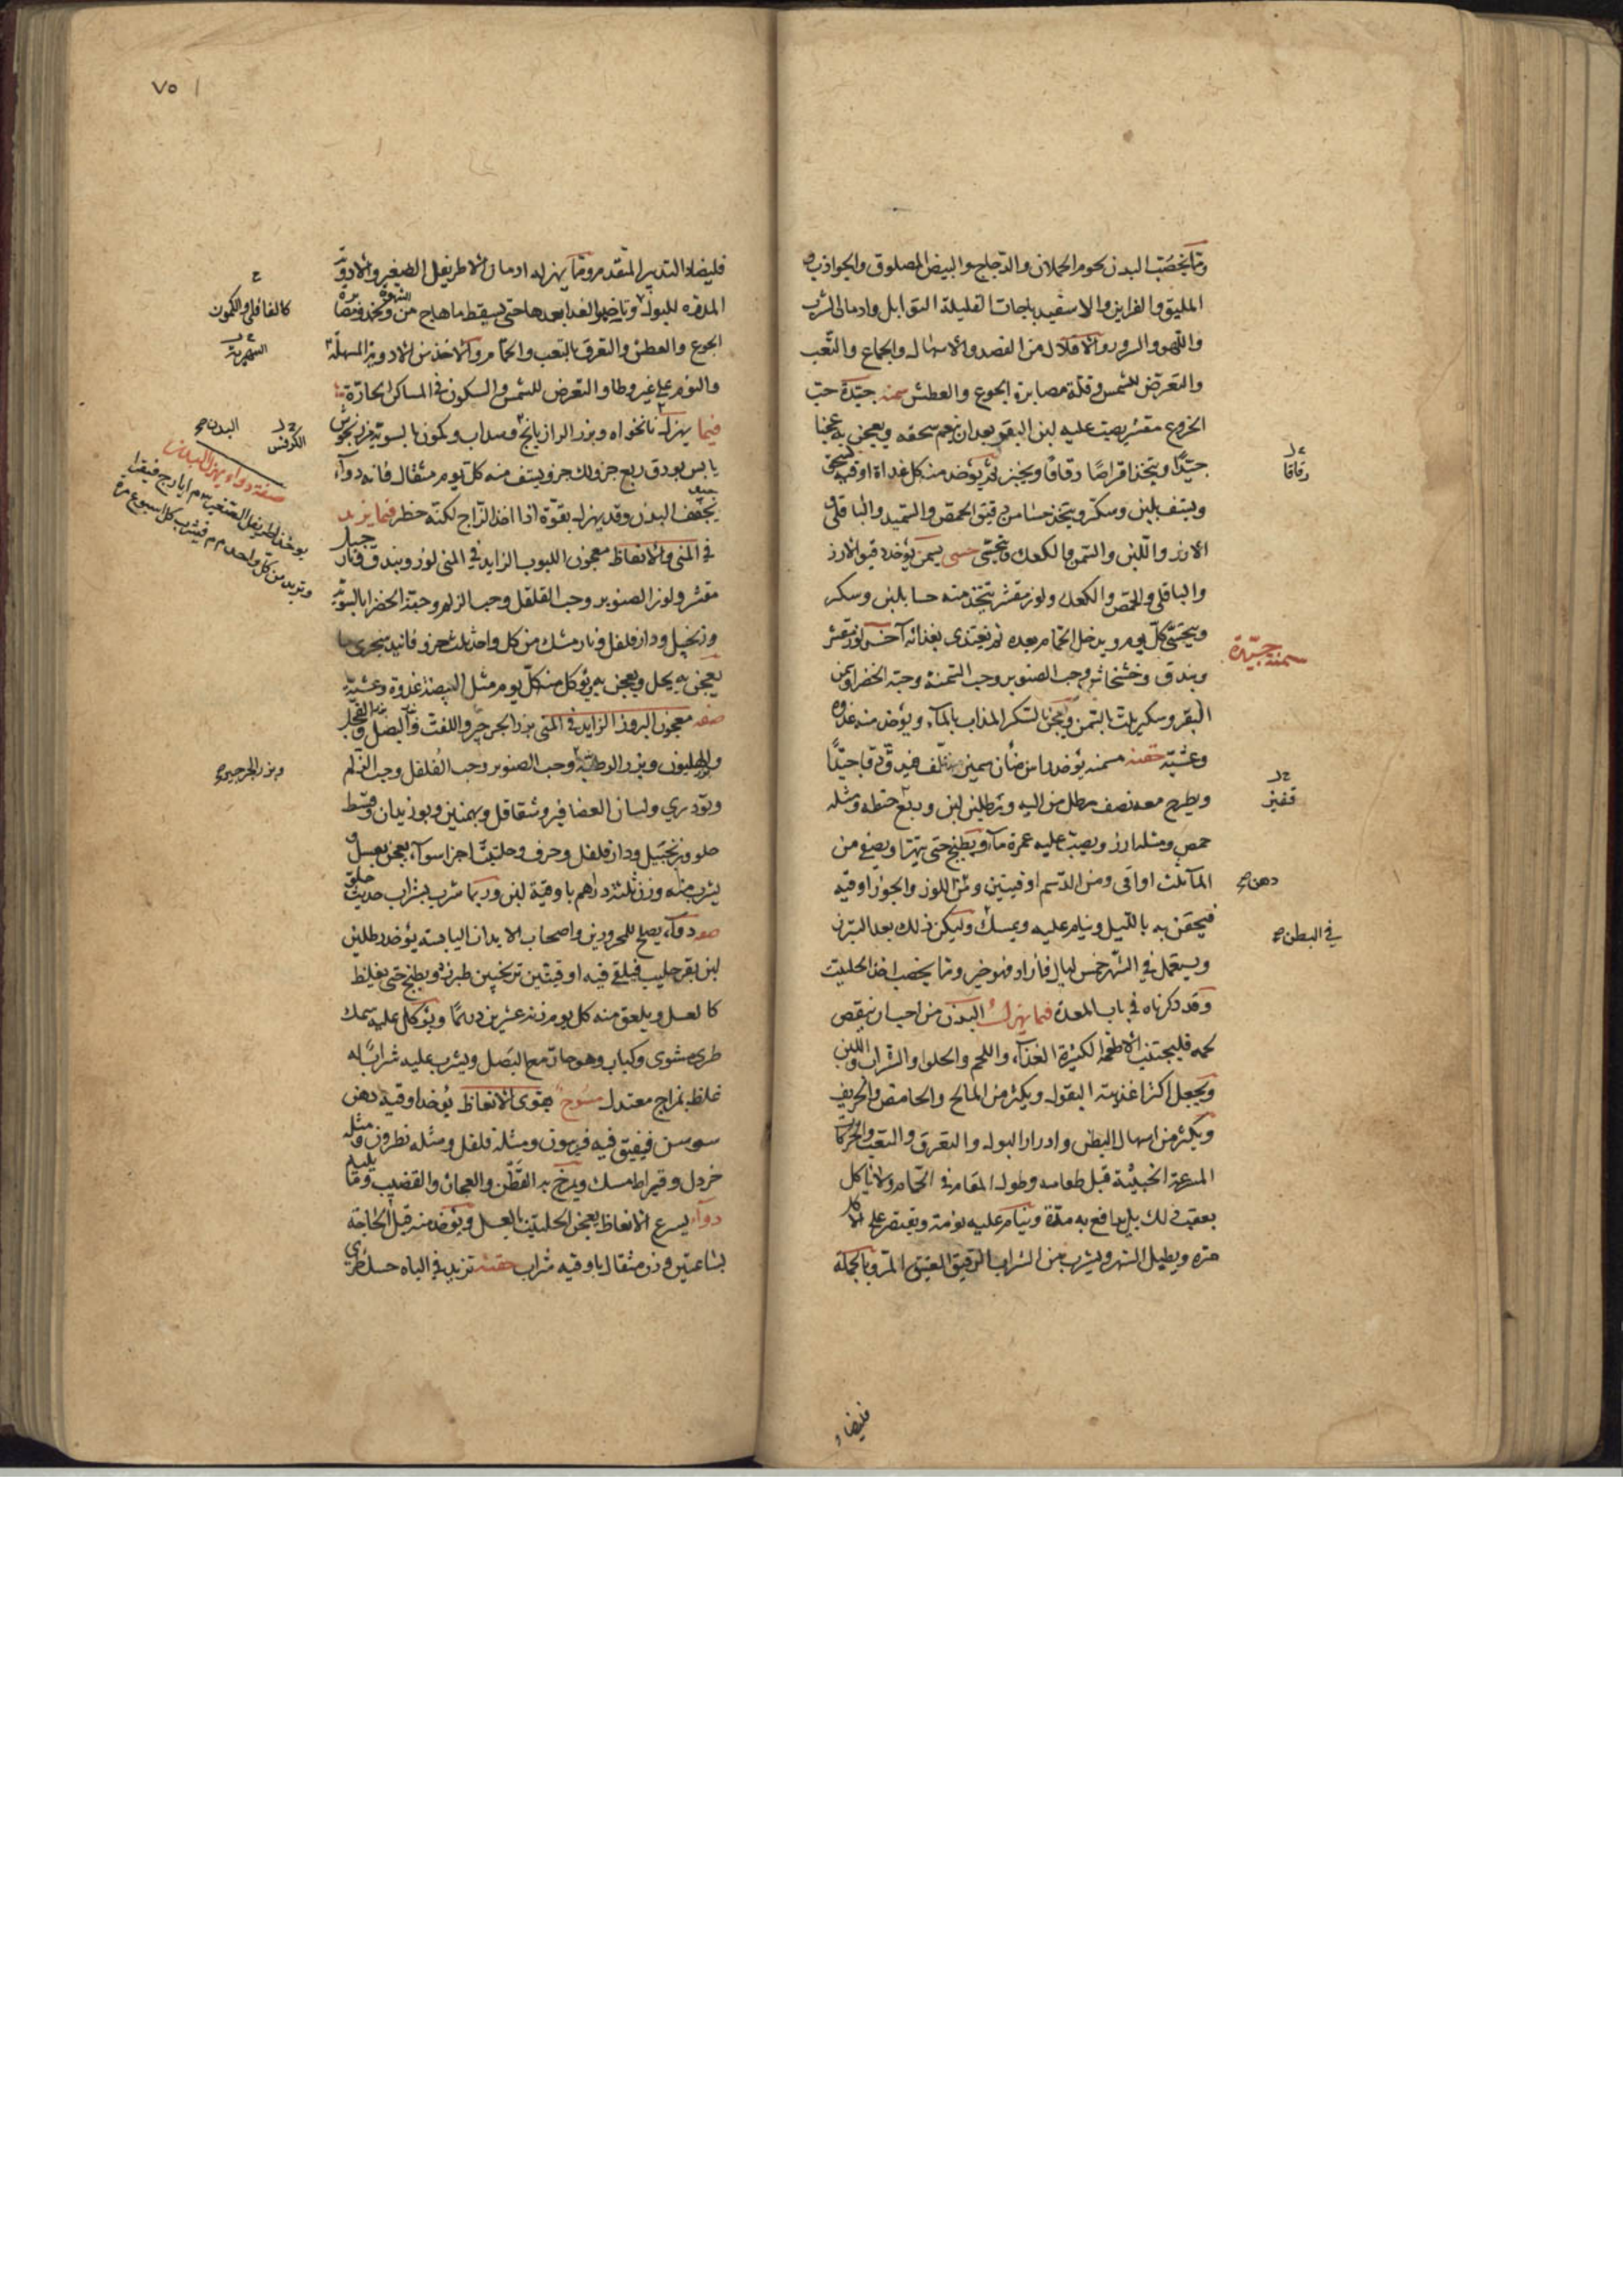 ومما يخصب البدن لحوم الحملان والدجاج والبيض المصلوق والجواذيب
والفراريج والاسفيدباجات القليلة التوابل وادمان الشرب
واللهو والسرور والاقلال من الفصد والاسهال والجماع والتعب
والتعرض للشمس وقلة مصابرة الجوع والعطش سمنة جيدة حب
الخروع مقشر يصب عليه لبن البقر بعد ان ينعم سحقه ويعجن به عجنا
جيدًا ويتخذ اقراصًا رقاقًا ويخبز ثم يؤخذ منه كل غداة اوقية يسحق
رقاقا
ويستف بلبن وسكر ويتخذ حسا من دقيق الحمص والسميد والباقلى
الارز واللبن والسمن والكعك ويتحسى حسى يسمن يؤخذ دقيق الارز
والباقلى والحمص والكعك ولوز مقشر يتخذ منه حسا بلبن وسكر
ويتحسى كل يوم ويدخل الحمام بعده ثم يغتذى بغذائه آخر لوز مقشر
سمنة جيدة
وبندق وحب الصنوبر وحب السمنة وحبة الخضرا وسمن
البقر وسكر يلت بالسمن ويعجن بالسكر المذاب بالماء ويؤخذ منه غدوة
وعشية حقنة مسمنة يؤخذ راس ضان سمين فيدق دقا جيدًا
ويطرح معه نصف رطل من الية ورطلين لبن وربع حنطه ومثله
قفيز
حمص ومثله ارز ويصب عليه غمرة مآء ويطبخ حتى يتهرا ويصفى من
المآ ثلث اواقى ومن الدسم اوقيتين ومن اللوز والجوز اوقيه
دهن صح
فيحقن به بالليل وينام عليه ويمسك وليكن ذلك بعد التبرز
في البطن صح
ويستعمل في الشهر خمس ليال فان زاد فهو خير ومما يخصب اخذ الحلتيت
وقد ذكرناه في باب المعدة فيما يهزل البدن من احب ان ينقص
لحمه فليجتنب الاطعمة الكثيرة الغذآء واللحم والحلوا والشراب واللبن
ويجعل اكثر اغذيته البقول ويكثر من المالح والحامض والحريف
ويكثر من اسهال البطن وادرار البول والتعرق والتعب والحركات
المسرعة قبل طعامه وطول المقام في الحمام ولا ياكل
بعقب ذلك بل يدافع به مدة وينام عليه نومة ويقتصر على الاكل
مره ويطيل السهر ويشرب من الشراب الرقيق العتيق المر وبالجملة
فليضاد
٧٥
فليضاد التدبير المتقدم ومما يهزله ادمان الاطريفل الصغير والادوية
المدرة للبول وتاخير الغدا بعدها حتى يسقط ما هاج من الشهوة
كالفافلى والكمون
الجوع والعطش والتعرق بالتعب والحمام والاخذ من الادوية المسهلة
السهرية
والنوم على غير وطا والتعرض للشمس والسكون في المساكن الحارة
فيما يهزل نانخواه وبزر الرازيانج وسداب وكمون بالسوية مرزنجوش
البدن صح
الكرفس
يابس بورق ربع جزو لك جزو يستف منه كل يوم مثقال فانه دوآء
صفة دواء يهزل البدن
يؤخذ اطريفل الصغير ايارج فيقرا
وتربد من كل واحد فيشرب كل اسبوع مرة
يجفف البدن وقد يهزل بقوة اذا اخذ الزاج لكنه خطر فيما يزيد
في المنى والانعاظ معجون اللبوب الزايد في المنى لوز وبندق
مقشر ولوز الصنوبر وحب القلقل وحب الزلم وحبة الخضرا بالسوية
وزنجبيل ودارفلفل ونارمشك من كل واحد ثلث جزو فانيد سجزى ما
يعجن به يحل ويعجن به يؤكل منه كل يوم مثل البيضة غدوة وعشية
صفة معجون البزور الزايد في المنى بزر الجرجر واللفت والبصل والفجل
والهليون وبزر الرطبة وحب الصنوبر وحب الفلفل وحب الزلم
وبزر الجرجير صح
وتودري ولسان العصافير وشقاقل وبهمنين وبوزيدان وقسط
حلو وزنجبيل ودارفلفل وحرف وحلتيت اجزا سوآء يعجن بعسل
يشرب منه وزن ثلثة دراهم باوقية لبن وربما شرب بشراب حديث حلو
دوآء يصلح للمحرورين واصحاب الابدان اليابسة يؤخذ رطلين
لبن بقر حليب فيلقى فيه اوقيتين ترنجبين طبرزد ويطبخ حتى يغلظ
كالعسل ويلعق منه كل يوم وزن عشرين درهمًا ويؤكل عليه سمك
طرى مشوى وكباب وهو حار مع البصل ويشرب عليه شرابًا له
غلظ بمزاج معتدل مسوح يقوى الانعاظ يؤخذ اوقية دهن
سوسن فيفتق فيه فربيون ومثله فلفل ومثله نطرون ومثله
خردل وقيراط مسك ويمرخ به القطن والعجان والقضيب وما يليه
دوآء يسرع الانعاظ يعجن الحلتيت بالعسل ويؤخذ منه قبل الحاجة
بساعتين وزن مثقال باوقيه شراب حقنة تزيد في الباه حسك طرى